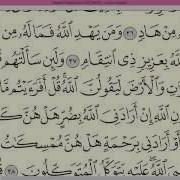 مِنْ هَادٍ ٣٦ وَمَن يَهْدِ ٱللَّهُ فَمَا لَهُۥ
بِعَزِيزٍ ذِى ٱنتِقَامٍ ٣٧ وَلَئِن سَأَلْتَهُم
وَٱلْأَرْضَ لَيَقُولُنَّ ٱللَّهُ قُلْ أَفَرَءَيْتُم مَّا
ٱللَّهِ إِنْ أَرَادَنِىَ ٱللَّهُ بِضُرٍّ هَلْ هُنَّ
أَوْ أَرَادَنِى بِرَحْمَةٍ هَلْ هُنَّ مُمْسِكَـٰتُ
ٱللَّهُ عَلَيْهِ يَتَوَكَّلُ ٱلْمُتَوَكِّلُونَ ٣٨